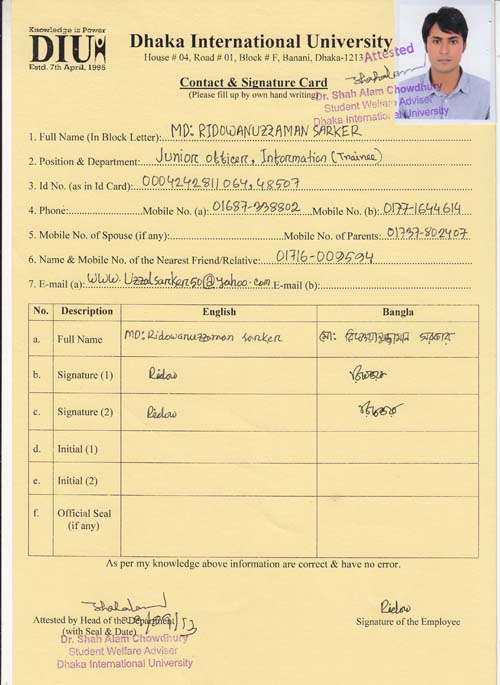 Knowledge is Power
DIU
Estd. 7th April, 1995
Dhaka International University
House # 04, Road # 01, Block # F, Banani, Dhaka-1213
Contact & Signature Card
(Please fill up by own hand writing)
Attested
Dr. Shah Alam Chowdhury
Student Welfare Adviser
Dhaka International University
1. Full Name (In Block Letter): MD: RIDOWANUZZAMAN SARKER
2. Position & Department: Junior officer, Information (Trainee)
3. Id No. (as in Id Card): 0004242811064, 48507
4. Phone: Mobile No. (a): 01687-238802 Mobile No. (b): 0177-1644614
5. Mobile No. of Spouse (if any): Mobile No. of Parents: 01737-802407
6. Name & Mobile No. of the Nearest Friend/Relative: 01716-009594
7. E-mail (a): www.Uzzalsarker50@yahoo.com E-mail (b):
No. Description English Bangla
a. Full Name MD: Ridowanuzzaman sarker মো: রিদওয়ানুজ্জামান সরকার
b. Signature (1) Ridow
c. Signature (2) Ridow
d. Initial (1)
e. Initial (2)
f. Official Seal
(if any)
As per my knowledge above information are correct & have no error.
Ridow
Attested by Head of the Department
(with Seal & Date)
Signature of the Employee
Dr. Shah Alam Chowdhury
Student Welfare Adviser
Dhaka International University